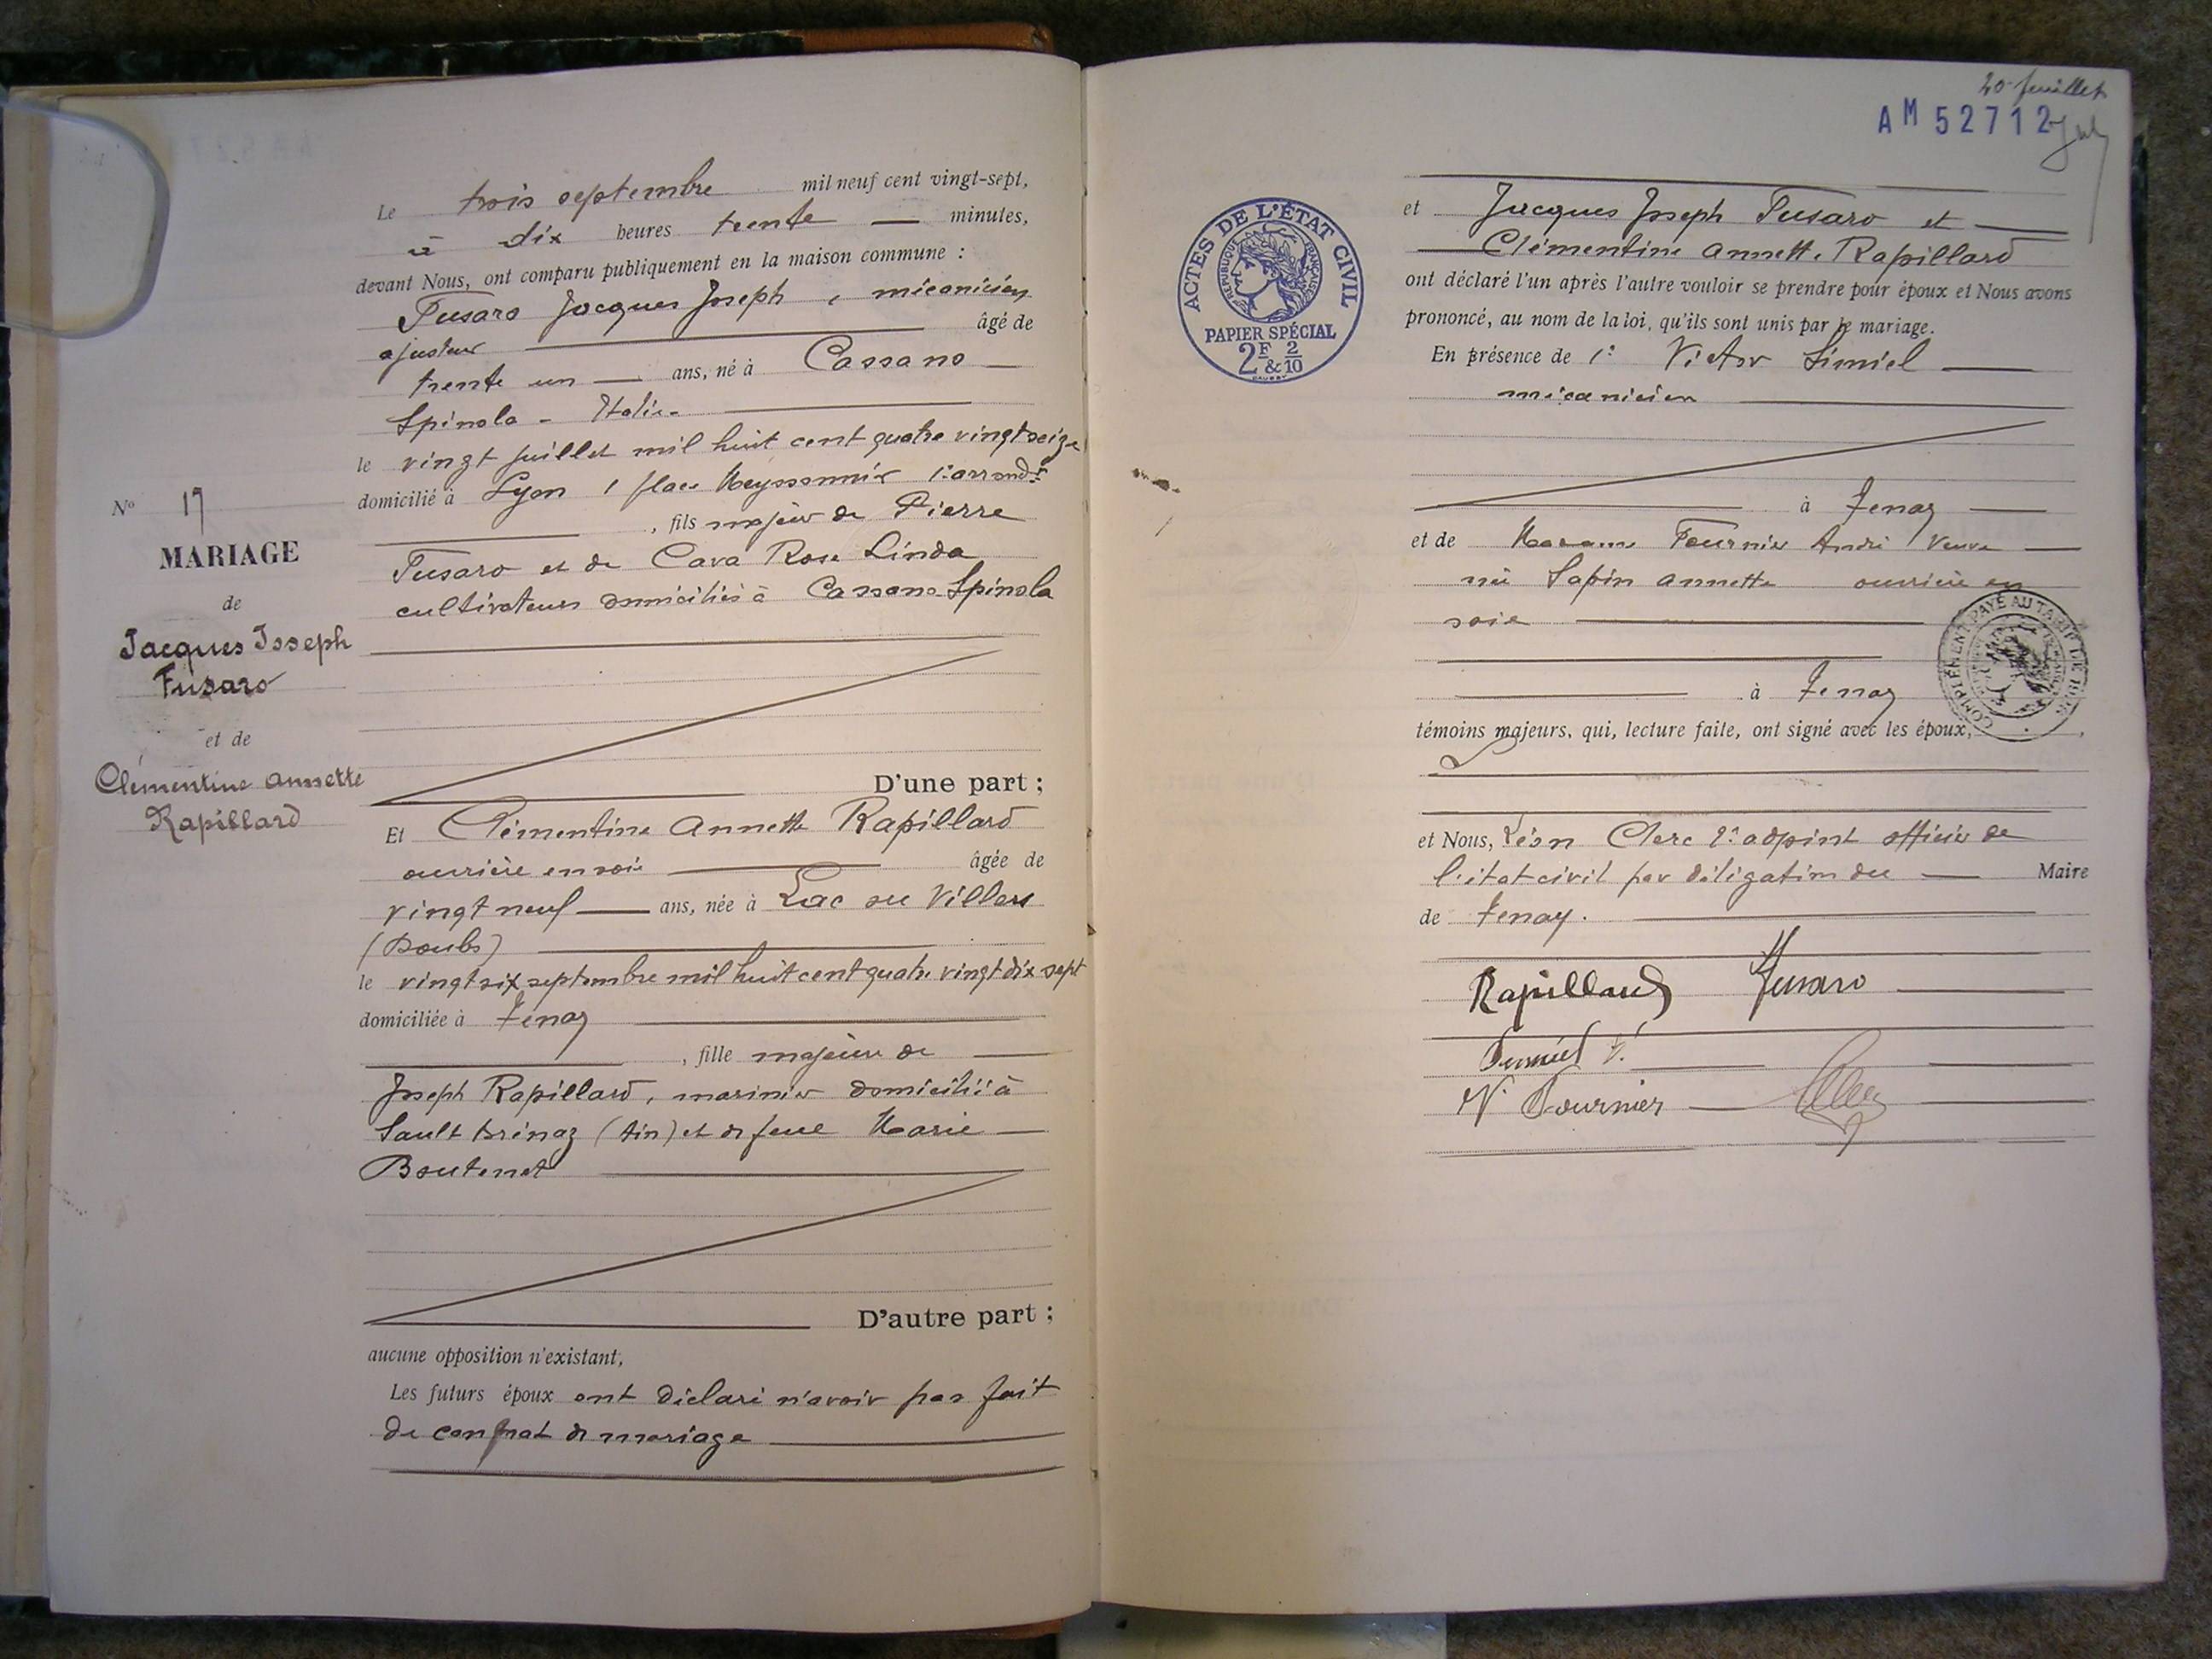 N° 17
MARIAGE
de
Jacques Joseph
Fusaro
et de
Clémentine Annette
Rapillard
Le trois septembre mil neuf cent vingt-sept,
à dix heures trente minutes,
devant Nous, ont comparu publiquement en la maison commune :
Fusaro Jacques Joseph, mécanicien
ajusteur âgé de
trente un ans, né à Cassano
Spinola - Italie
le vingt juillet mil huit cent quatre vingt seize
domicilié à Lyon 1 place Meyssonnier 1er arrondt
, fils majeur de Pierre
Fusaro et de Cava Rose Linda
cultivateurs domiciliés à Cassano Spinola
D'une part ;
Et Clémentine Annette Rapillard
ouvrière en soie âgée de
vingt neuf ans, née à Lac ou Villers
(Doubs)
le vingt six septembre mil huit cent quatre vingt dix sept
domiciliée à Tenay
, fille majeure de
Joseph Rapillard, marinier domicilié à
Sault Brénaz (Ain) et de feue Marie
Boutenet
D'autre part ;
aucune opposition n'existant,
Les futurs époux ont déclaré n'avoir pas fait
de contrat de mariage
20e feuillet
AM 52712
ACTES DE L'ÉTAT CIVIL
RÉPUBLIQUE FRANÇAISE
PAPIER SPÉCIAL
2F & 2/10
et Jacques Joseph Fusaro et
Clémentine Annette Rapillard
ont déclaré l'un après l'autre vouloir se prendre pour époux et Nous avons
prononcé, au nom de la loi, qu'ils sont unis par le mariage.
En présence de 1° Victor Simiel
mécanicien
à Tenay
et de Madame Fournier André Veuve
née Sapin Annette ouvrière en
soie
COMPLÉMENT PAYÉ AU TARIF DE
à Tenay
témoins majeurs, qui, lecture faite, ont signé avec les époux,
et Nous, Léon Clerc 2e adjoint officier de
l'état civil par délégation du Maire
de Tenay.
Rapillard Fusaro
V. Fournier Clerc